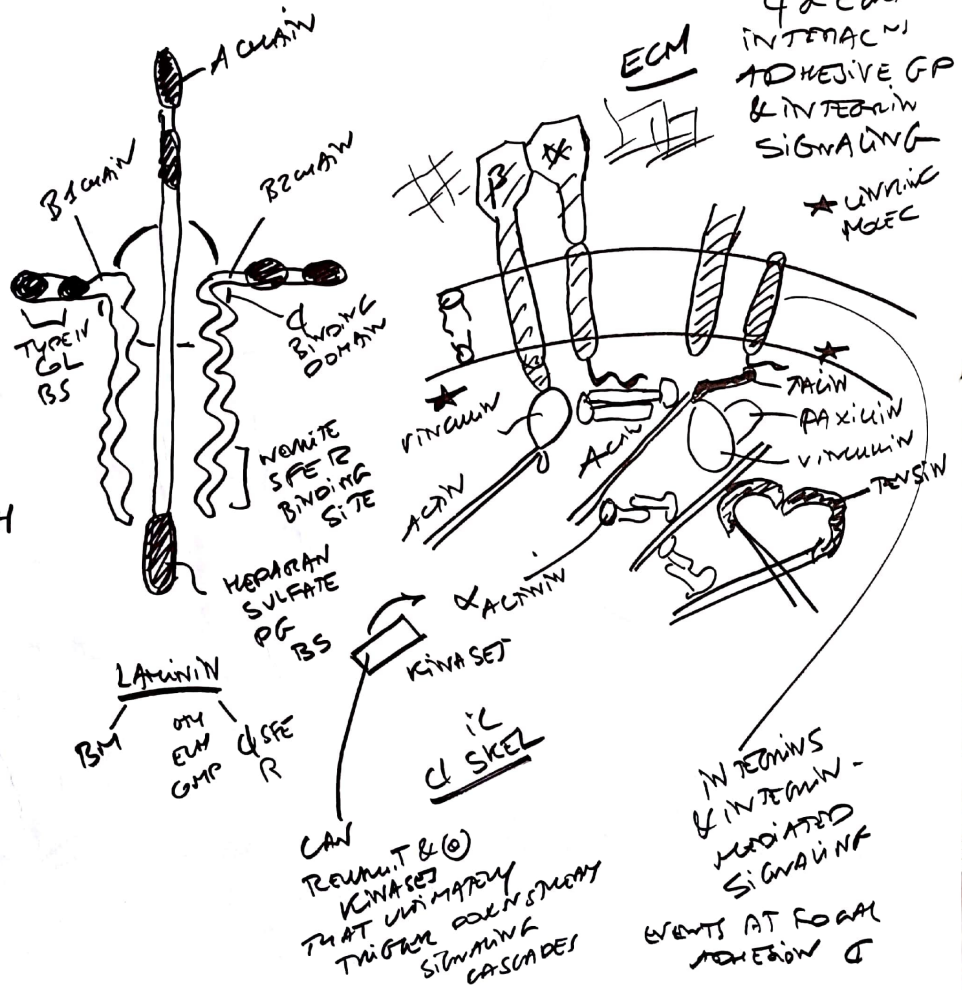 A CHAIN
B1 CHAIN
B2 CHAIN
TYPE IV
COL
BS
BINDING
DOMAIN
NEURITE
SFE R
BINDING
SITE
HEPARAN
SULFATE
PG
BS
LAMININ
BM
OTH
ECM
CMP
SFE
R
ECM
INTERAC NS
ADHESIVE GP
& INTEGRIN
SIGNALING
★ LINKING
MOLEC
β
α
★
VINCULIN
ACTIN
ACTIN
★
TALIN
PAXILLIN
VINCULIN
TENSIN
α ACTININ
KINASES
IC
SKEL
CAN
RECRUIT &
KINASES
THAT ULTIMATELY
TRIGGER DOWNSTREAM
SIGNALING
CASCADES
INTEGRINS
& INTEGRIN-
MEDIATED
SIGNALING
EVENTS AT FOCAL
ADHESION C